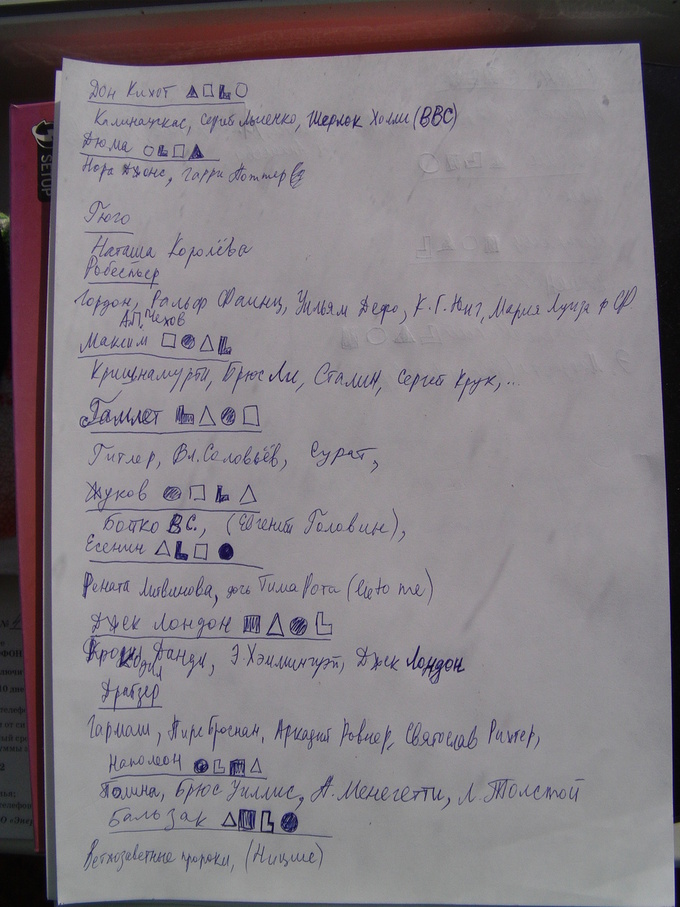 Дон Кихот
Калинаускас, Сергей Льченко, Шерлок Холмс (BBC)
Дюма
Нора Джонс, Гарри Поттер
Гюго
Наташа Королёва
Робеспьер
Гордон, Ральф Файнц, Уильям Дефо, К.Г. Юнг, Мария Луиза ф Ф.
А.П. Чехов
Максим
Кришнамурти, Брюс Ли, Сталин, Сергей Крук, ...
Гамлет
Гитлер, Вл. Соловьёв, Сурат,
Жуков
Бойко В.С., (Евгений Головин),
Есенин
Рената Литвинова, дочь Тима Рота (lie to me)
Джек Лондон
Крокодил Данди, Э. Хэмлингуэй, Джек Лондон
Драйзер
Гармаш, Пирс Броснан, Аркадий Ровнер, Святослав Рихтер,
Наполеон
Полина, Брюс Уиллис, А. Менегетти, Л. Толстой
Бальзак
Ветхозаветные пророки, (Ницше)
SETUP